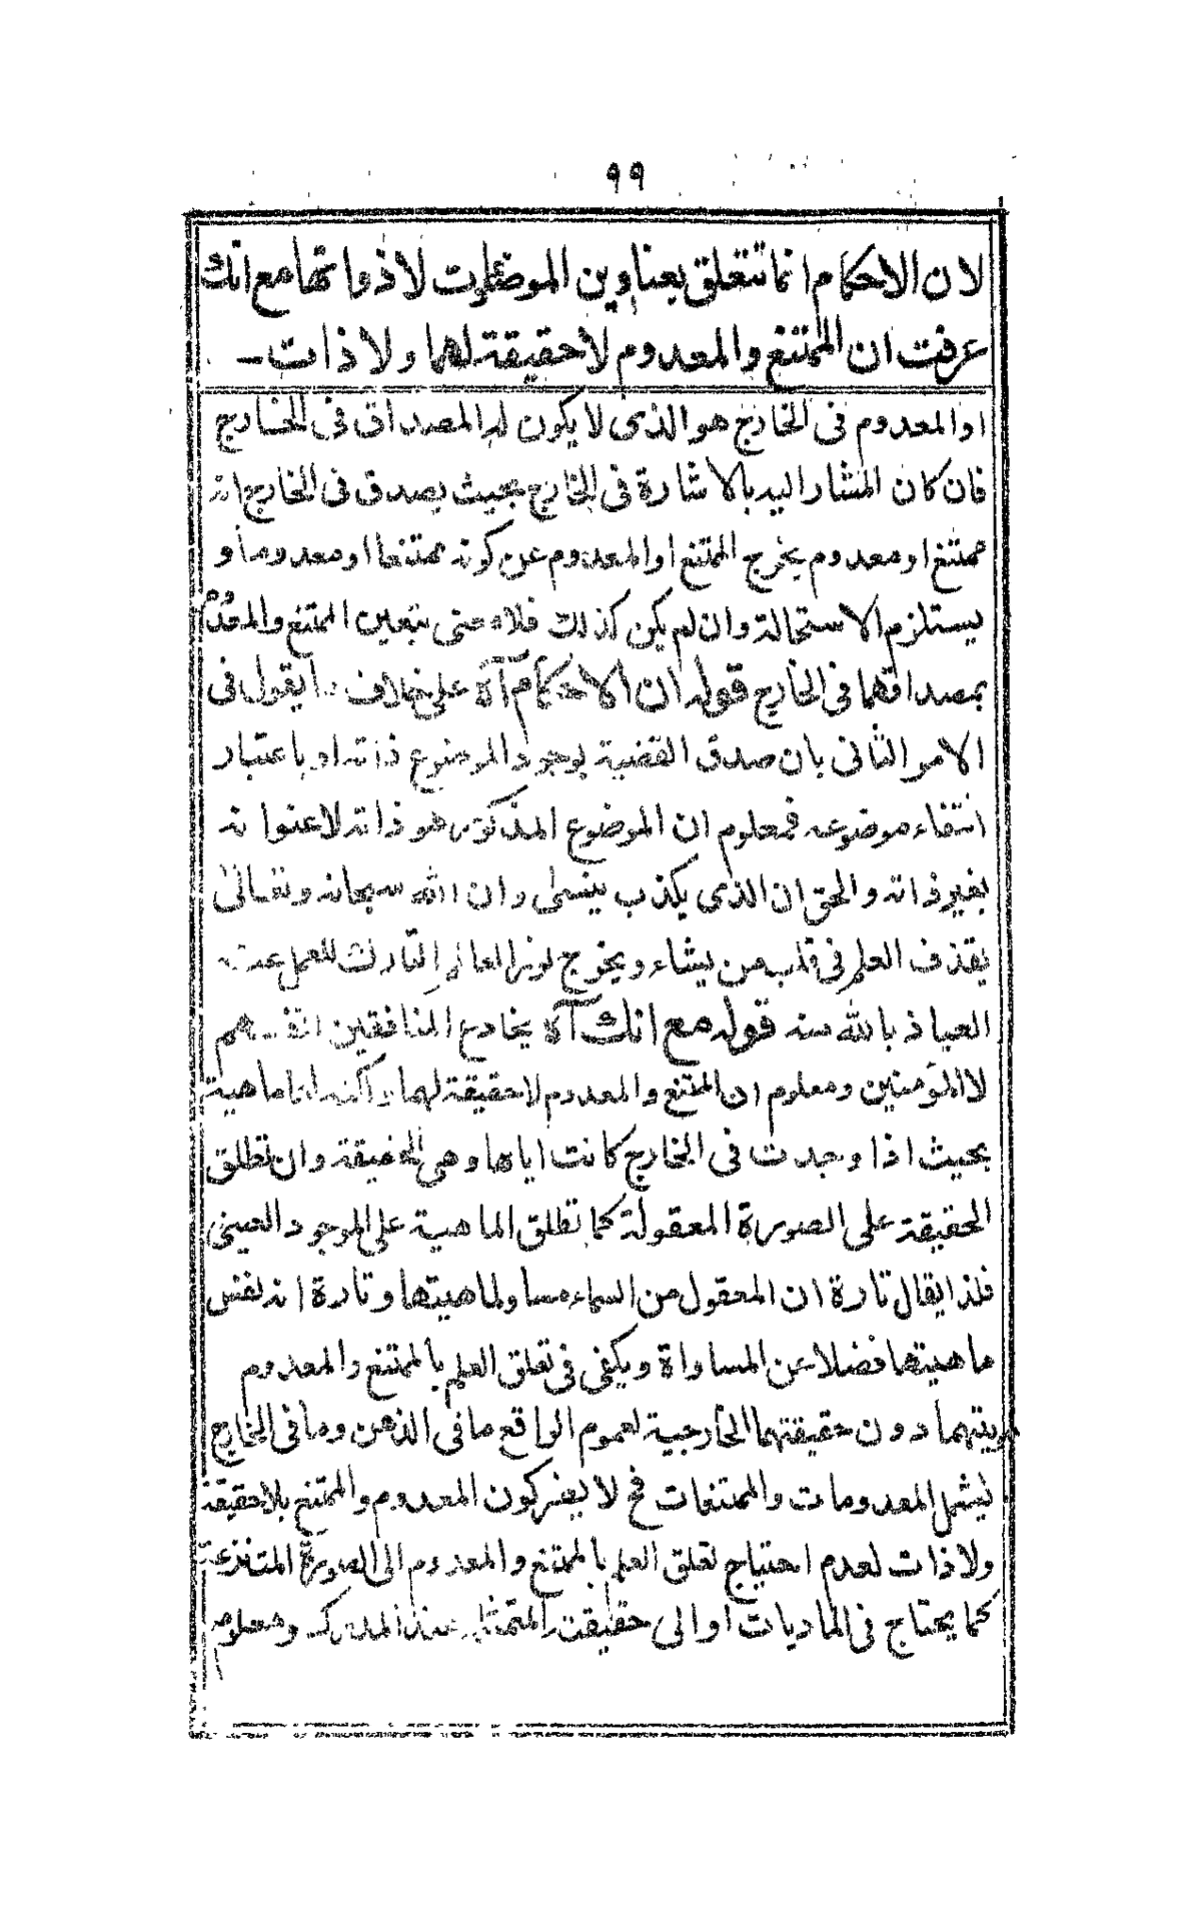 ٩٩
لان الاحكام انما تتعلق بعناوين الموضوعات لا ذواتها مع انك
عرفت ان الممتنع والمعدوم لا حقيقة لهما ولا ذات ــ
او المعدوم فى الخارج هو الذى لا يكون له المصداق فى الخارج
فان كان المشار اليه بالاشارة فى الخارج بحيث يصدق فى الخارج انه
ممتنع او معدوم يخرج الممتنع او المعدوم عن كونه ممتنعا او معدوما و
يستلزم الاستحالة وان لم يكن كذلك فلا حتى يتعين الممتنع والمعدوم
بمصداقهما فى الخارج قوله ان الاحكام آه على خلاف ما يقول فى
الامر الثانى بان صدق القضية بوجود الموضوع ذاته او باعتبار
انتفاء موضوعه فمعلوم ان الموضوع المذكور هو ذاته لا عنوانه
بغير ذاته والحق ان الذى يكذب ينسى وان الله سبحانه وتعالى
يقذف العلم فى قلب من يشاء ويخرج نور العالم التارك للعمل عنه
العياذ بالله منه قوله مع انك آه يخادع المنافقين انفسهم
لا المؤمنين ومعلوم ان الممتنع والمعدوم لا حقيقة لهما ولكنه لهما ماهية
بحيث اذا وجدت فى الخارج كانت اياها وهى الحقيقة وان تطلق
الحقيقة على الصورة المعقولة كما تطلق الماهية على الموجود العينى
فلذا يقال تارة ان المعقول من السماء مساو لماهيتها وتارة انه نفس
ماهيتها فضلا عن المساواة ويكفى فى تعلق العلم بالممتنع والمعدوم
دون حقيقتهما الخارجية لعموم الواقع ما فى الذهن وما فى الخارج
ليشمل المعدومات والممتنعات فح لا يضر كون المعدوم والممتنع بلا حقيقة
ولا ذات لعدم احتياج تعلق العلم بالممتنع والمعدوم الى الصورة المتنزعة
كما يحتاج فى الماديات او الى حقيقته المتمثلة عند المدرك ومعلوم